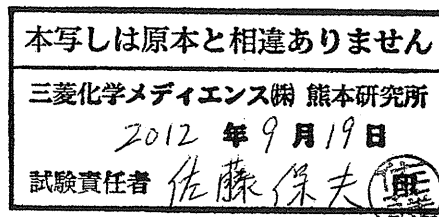 本写しは原本と相違ありません
三菱化学メディエンス㈱ 熊本研究所
2012 年 9 月 19 日
試験責任者 佐藤 保夫 印